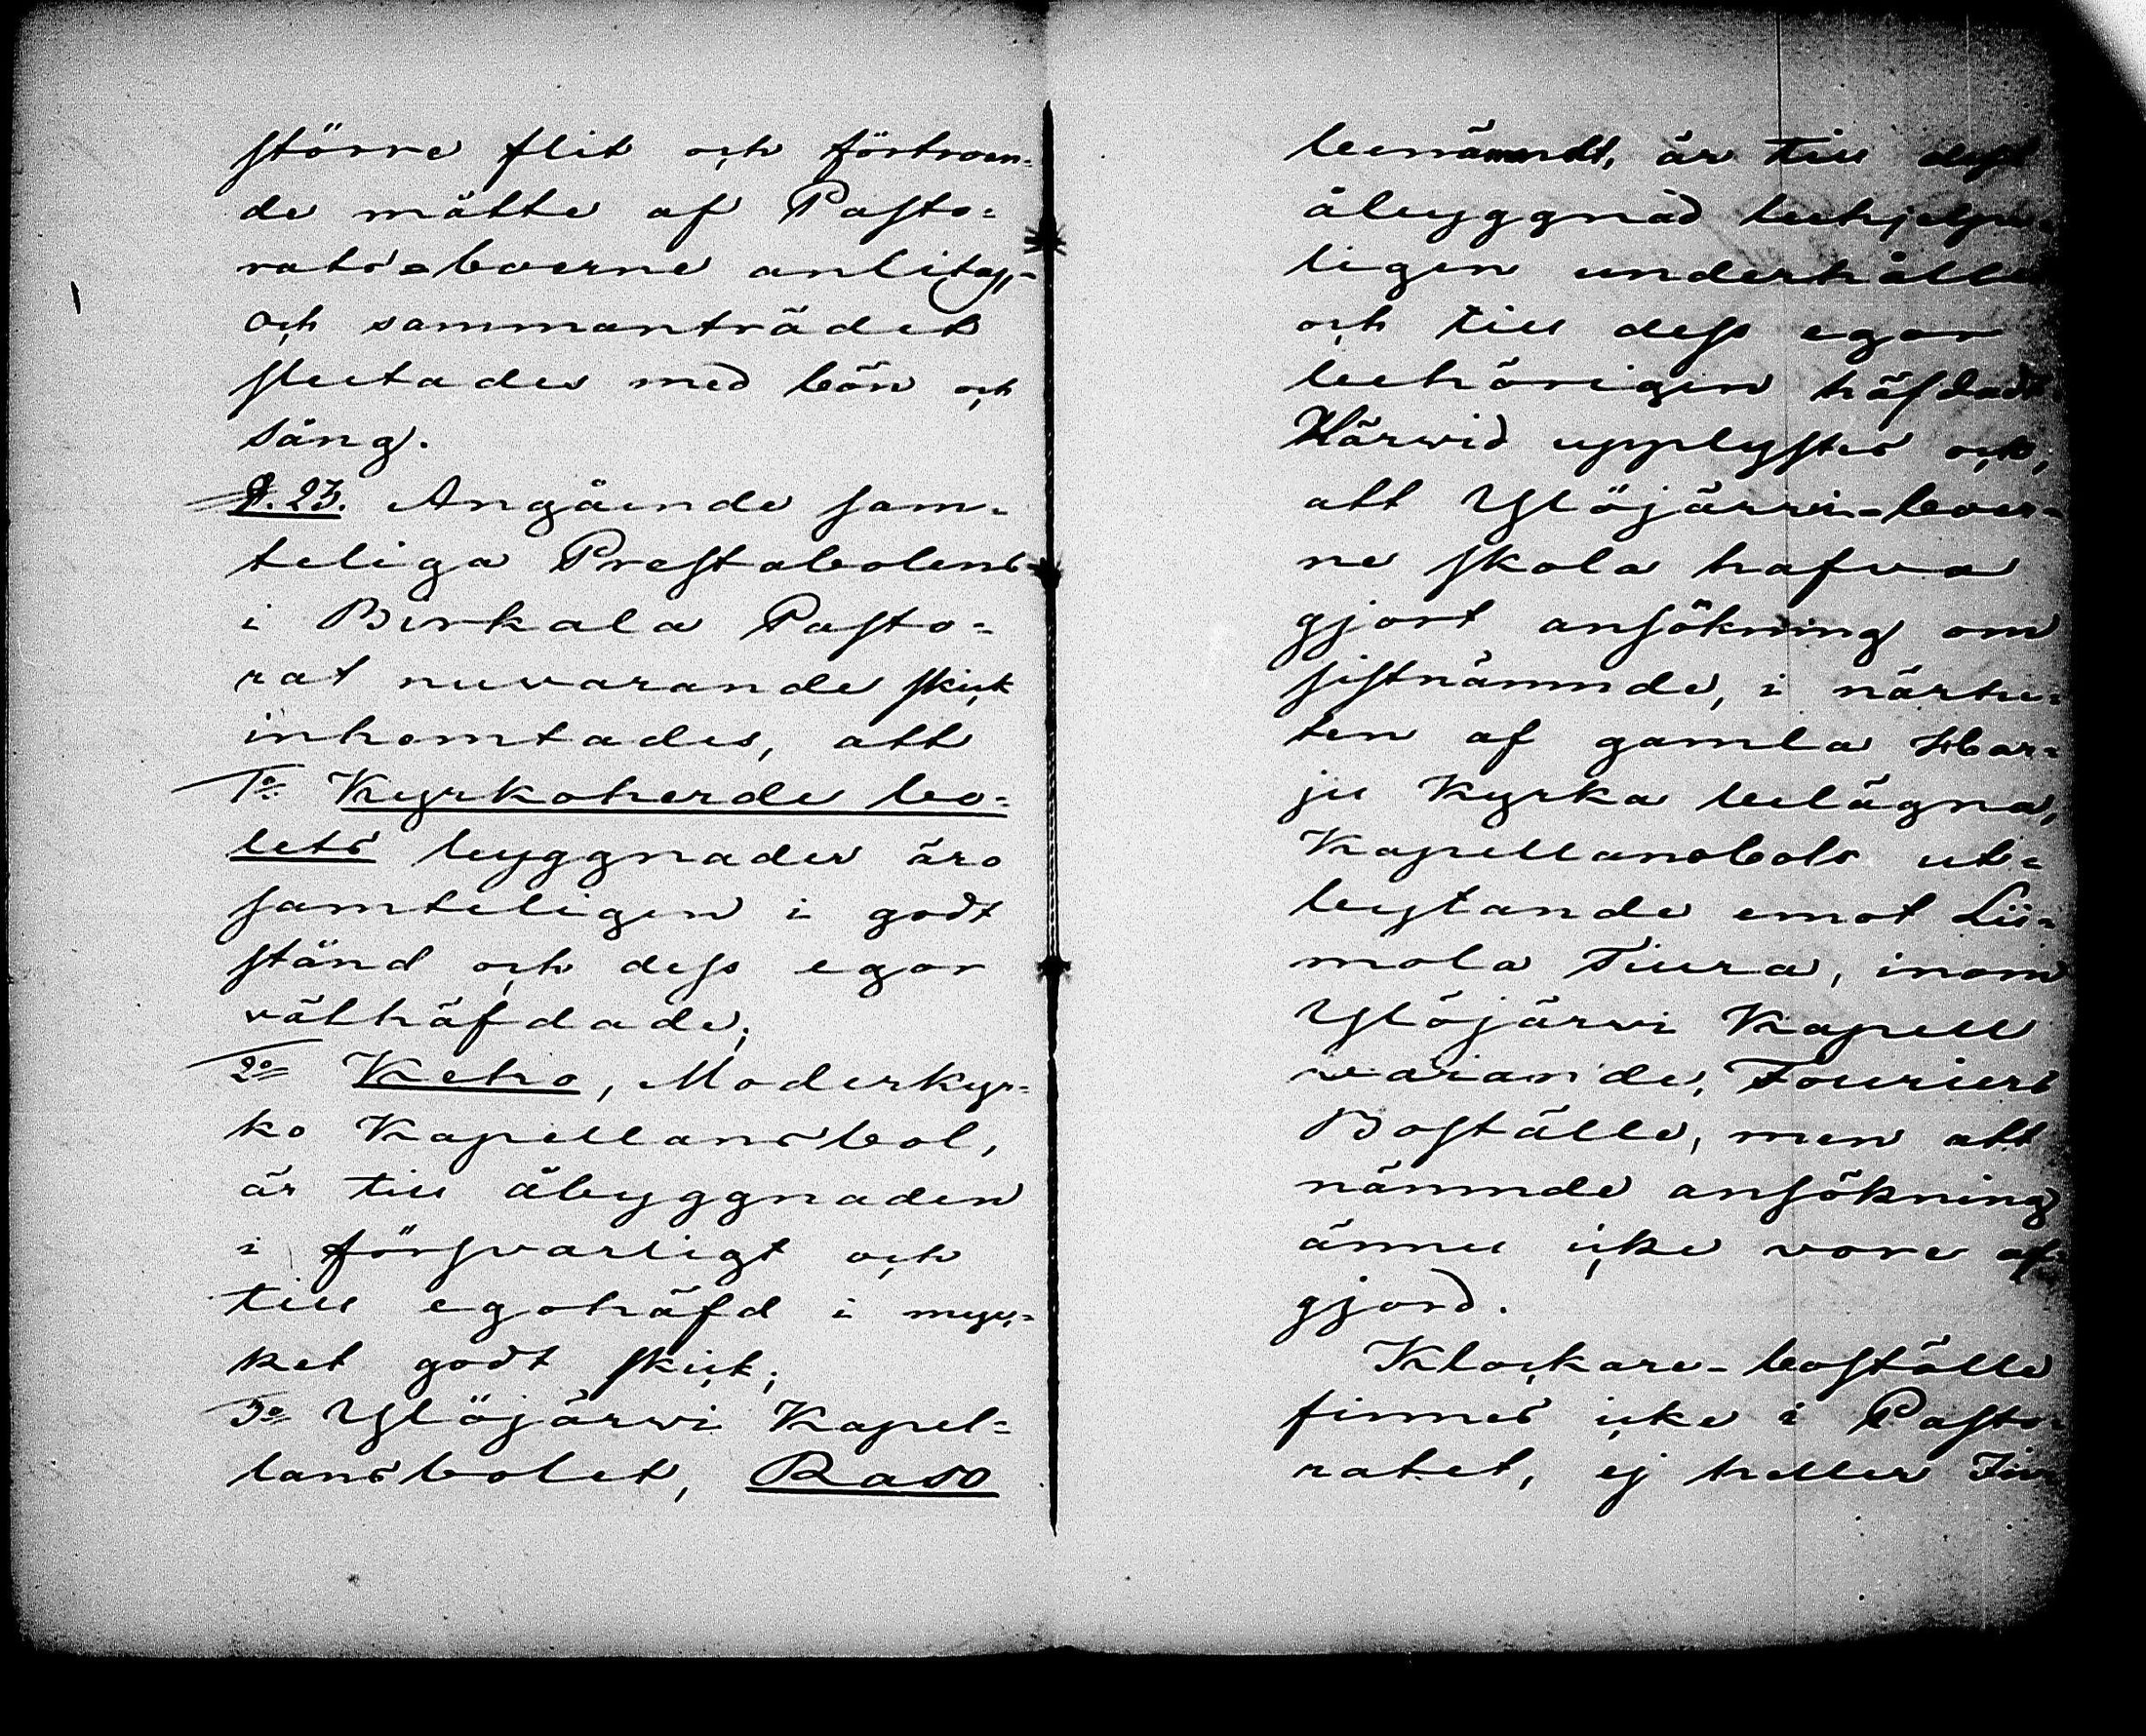 större flit och förtroen-
de måtte af Pasto=
rats=boerne anlitas,
och sammanträdet
slutades med bön och
sång.
§. 23. Angående sam-
teliga Prestabolens
i Birkala Pasto=
rat nuvarande skick
inhemtades, att
1o Kyrkoherde bo=
lets byggnader äro
samteligen i godt
stånd och dess egor
välhäfdade;
2o Keho, Moderkyr=
ko Kapellansbol,
är till åbyggnaden
i försvarligt och
till egohäfd i myc=
ket godt skick;
3o Ylöjärvi Kapel=
lansbolet, Raso
benämndt, är till dess
åbyggnad behjelp=
ligen underhållet
och till dess egor
behörigen häfdadt.
Härvid upplystes ock,
att Ylöjärvi-boer=
ne skola hafva
gjort ansökning om
sistnämnde, i närhe=
ten af gamla Har=
ju Kyrka belägna,
Kapellansbols ut=
bytande emot Lii=
mola Tiura, inom
Ylöjärvi Kapell
varande, Fouriers
Boställe, men att
nämnde ansökning
ännu icke vore af=
gjord.
Klockare-boställe
finnes icke i Pasto=
ratet, ej heller